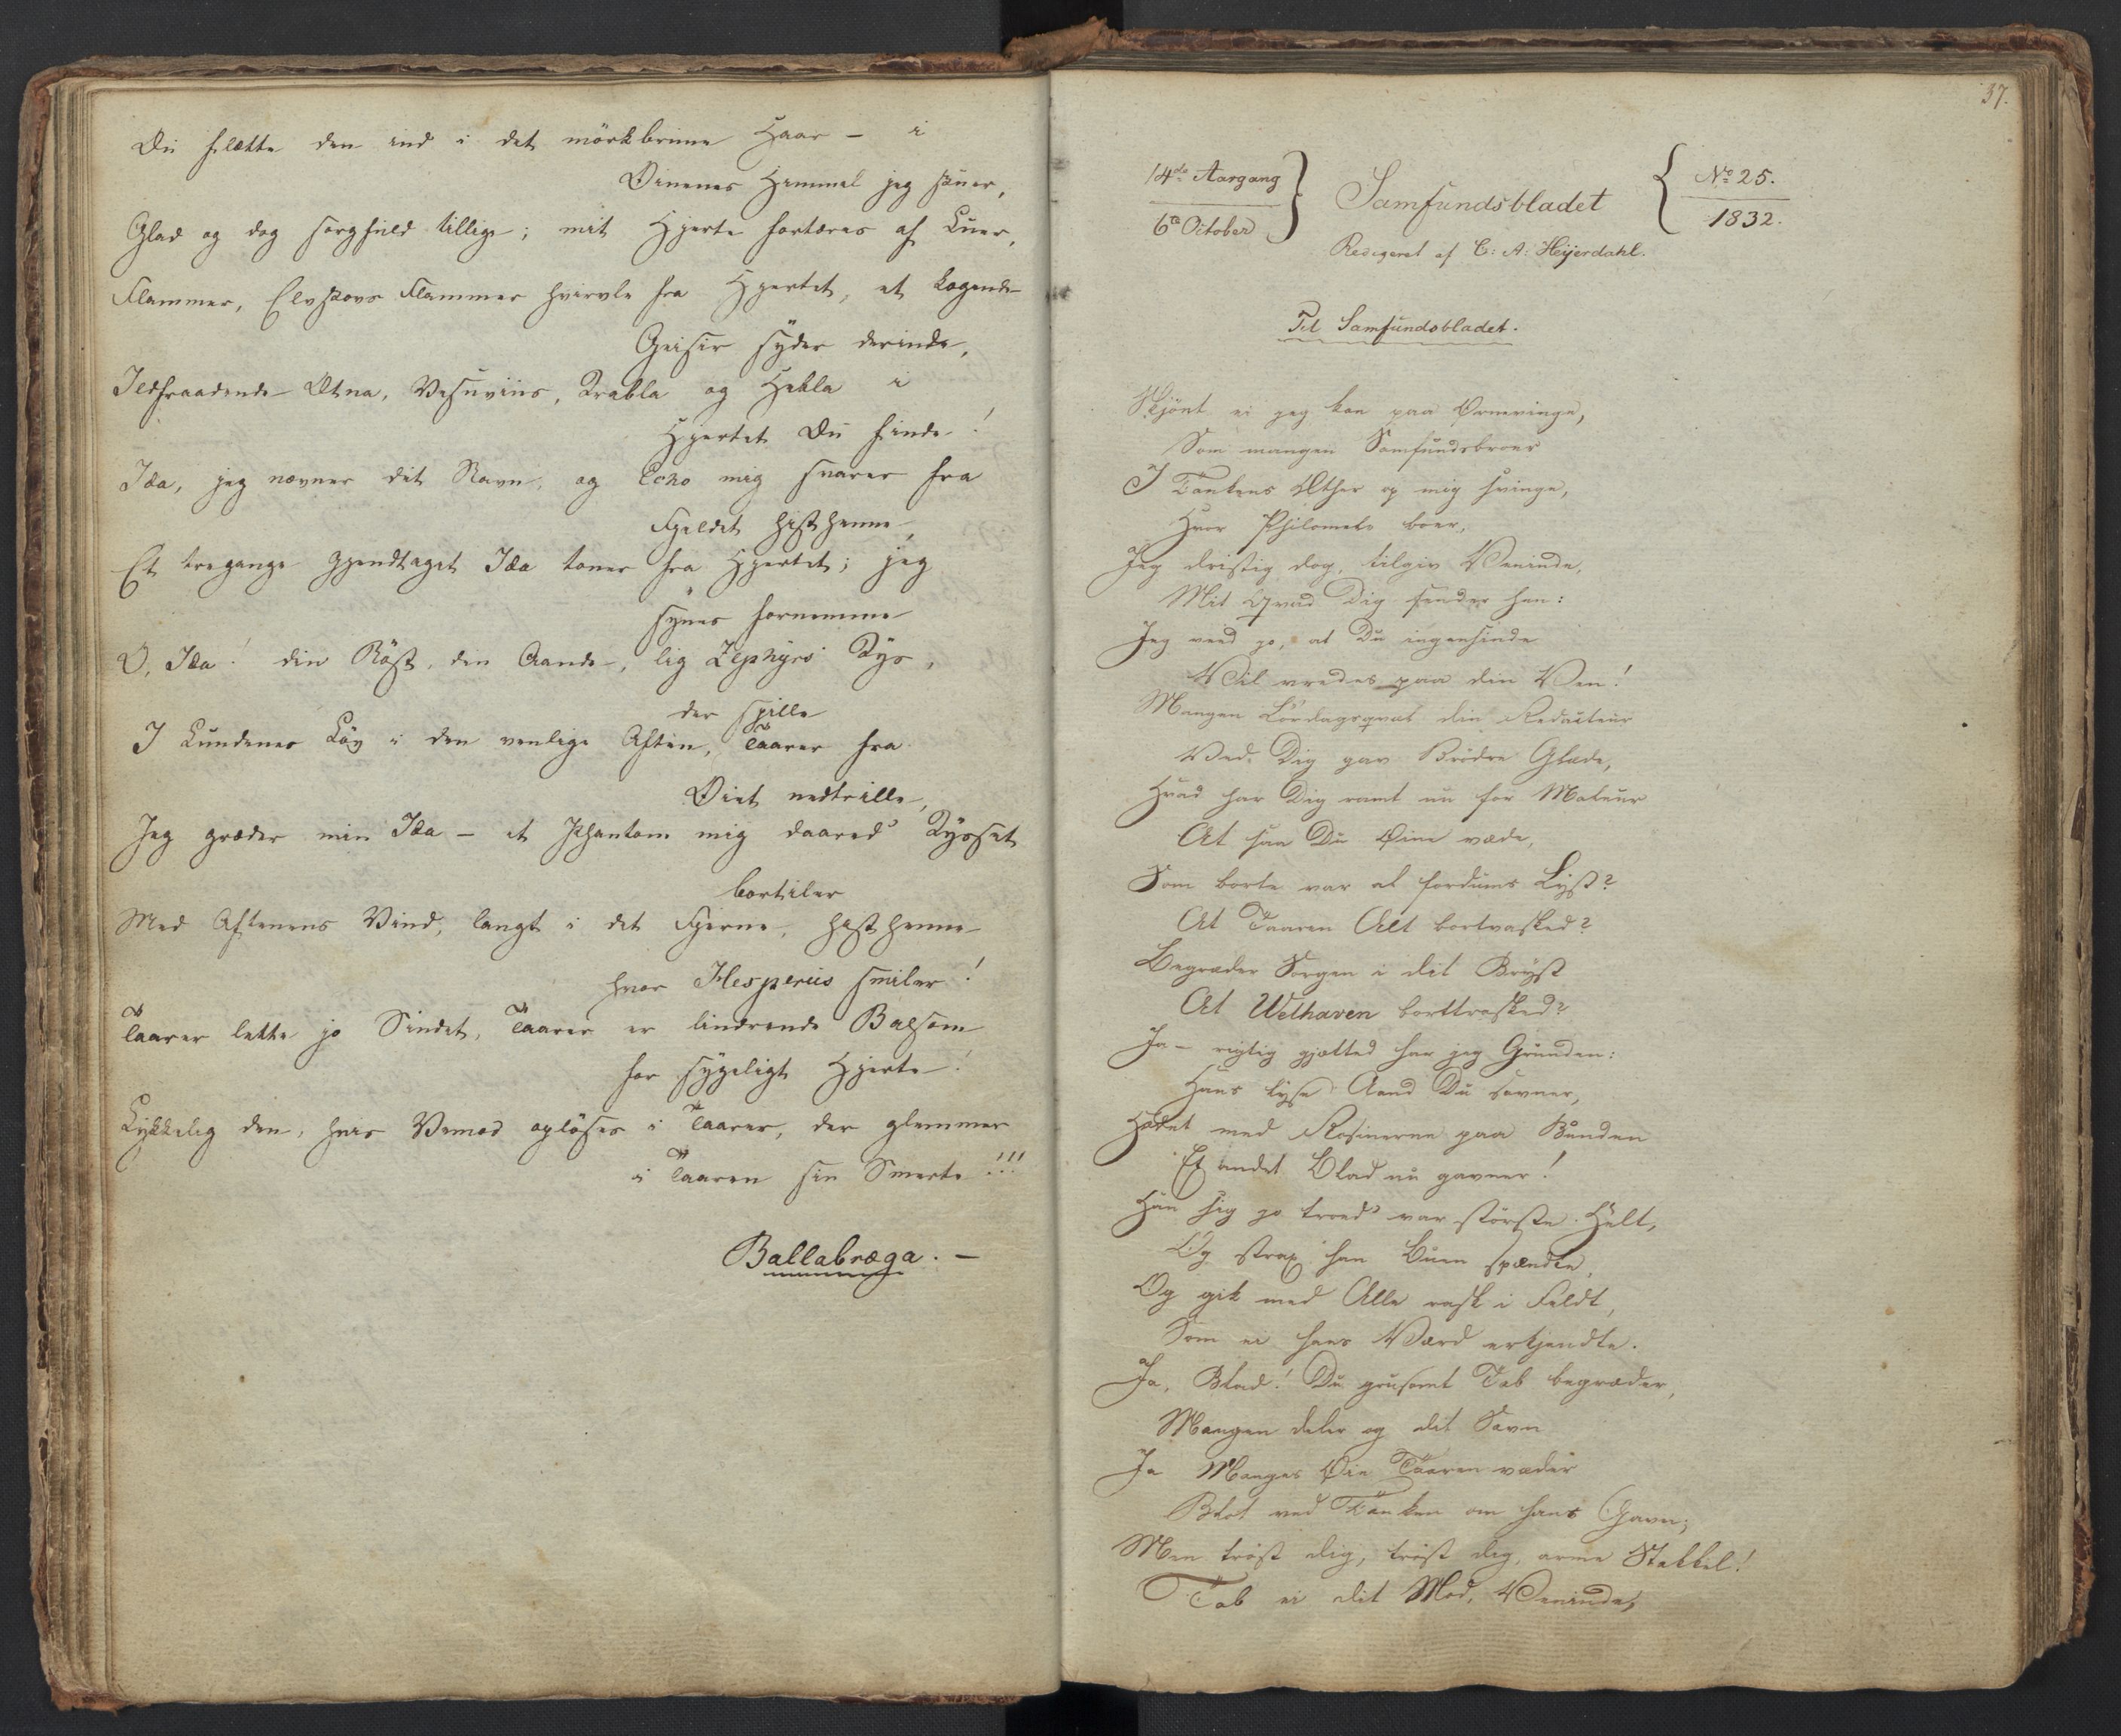 Du flætte den ind i det mörkbrune Haar – i
Öinenes Himmel jeg skuer,
Glad og dog sorgfuld tillige; mit Hjerte fortæres af Luer,
Flammer, Elvskovs Flammer hvirvle fra Hjertet, et kogende
Geisir syder derinde,
Ildfraadende Ætna, Vesuvius, Krabla og Hekla i
Hjertet Du finde!
Ida, jeg nævner dit Navn, og Echo mig svarer fra
Fjeldet histhenne,
Et tregange gjendtaget Ida toner fra Hjertet; jeg
synes fornemme
O, Ida! din Röst, din Aande, lig Zephyrs Kys,
der spille
I Lundenes Löv i den venlige Aften, Taarer fra
Öiet nedtrille,
Jeg græder min Ida – et Phantom mig daared' Kysset
bortiler
Med Aftenens Vind, langt i det Fjerne, histhenne
hvor Hesperus smiler!
Taarer lette jo Sindet, Taarer er lindrende Balsom
for sygeligt Hjerte!
Lykkelig den, hvis Vemod oplöses i Taarer, der glemmer
i Taaren sin Smerte!!!
Ballabræga. –
37.
14de Aargang
6te October
Samfundsbladet
Redigeret af C: A: Heijerdahl.
No 25.
1832.
Til Samfundsbladet.
Skjönt ei jeg kan paa Örnevinge,
Som mangen Samfundsbroer
I Tankens Æther op mig svinge,
Hvor Philomele boer,
Jeg dristig dog, tilgiv Veninde,
Mit Qvad Dig sender hen:
Jeg veed jo, at Du ingensinde
Vil vredes paa din Ven!
Mangen Lördagsqvel din Redacteur
Ved Dig gav Brödre Glæde,
Hvad har Dig ramt nu for Maleur
At saa Du Öine væde,
Som borte var al fordums Lyst?
At Taaren Alt bortvasked?
Begræder Sorgen i dit Bryst
At Welhaven borttrasked?
Ja – rigtig gjætted har jeg Grunden:
Hans lyse Aand Du savner,
Hodet med Rosinerne paa Bunden
Et andet Blad nu gavner!
Han sig jo troed' var störste Helt,
Og strax han Buen spændte,
Og gik mod Alle rask i Feldt,
Som ei hans Værd erkjendte.
Ja, Blad! Du grusomt Tab begræder,
Mangen deler og dit Savn
Ja Manges Öie Taaren væder
Blot ved Tanken om hans Gavn;
Men tröst dig, tröst dig, arme Stakkel!
Tab ei dit Mod, Veninde,